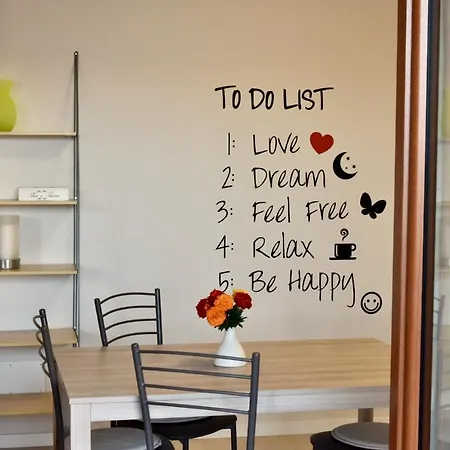 TO DO LIST
1: Love
2: Dream
3: Feel Free
4: Relax
5: Be Happy